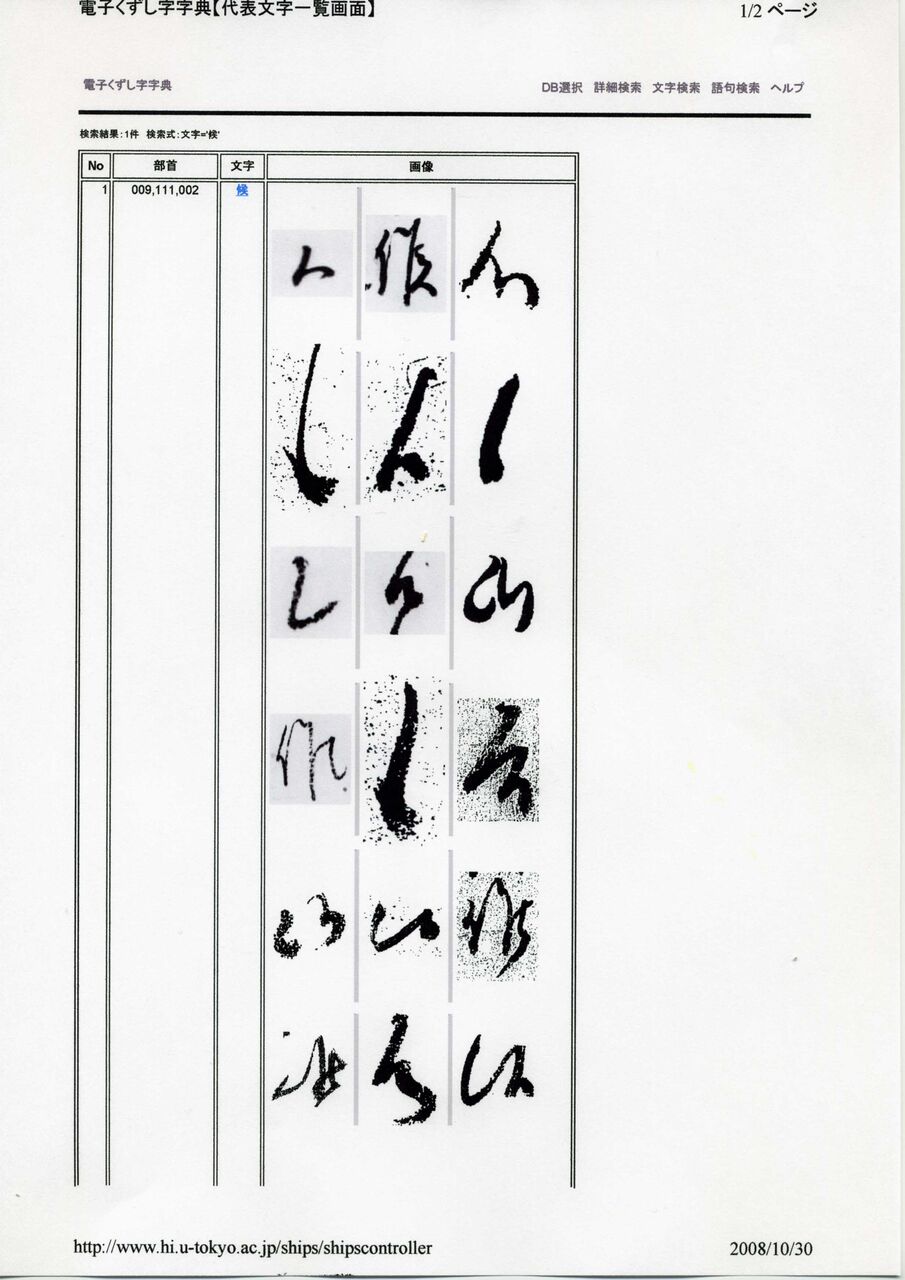 電子くずし字字典【代表文字一覧画面】 1/2 ページ
電子くずし字字典 DB選択 詳細検索 文字検索 語句検索 ヘルプ
検索結果：1件 検索式：文字='候'
No 部首 文字 画像
1 009,111,002 候
http://www.hi.u-tokyo.ac.jp/ships/shipscontroller 2008/10/30